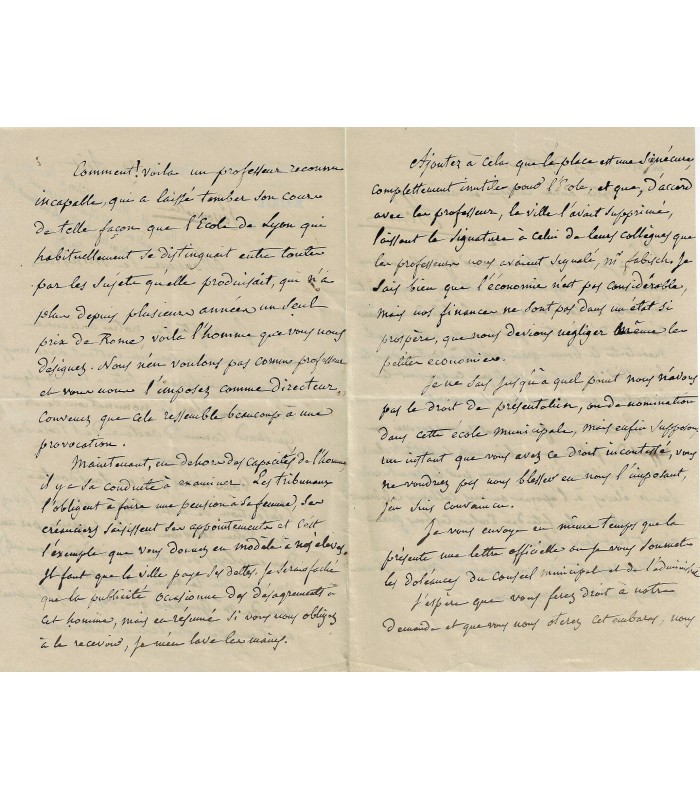 Comment! voila un professeur reconnu
incapable, qui a laissé tomber son cours
de telle façon que l'Ecole de Lyon qui
habituellement se distinguait entre toutes
par les sujets qu'elle produisait, qui n'a
plus depuis plusieurs années un seul
prix de Rome voila l'homme que vous nous
désignez. Nous n'en voulons pas comme professeur
et vous nous l'imposez comme directeur,
convenez que cela ressemble beaucoup à une
provocation.
Maintenant, en dehors des capacités de l'homme
il y a sa conduite à examiner. Les tribunaux
l'obligent à faire une pension à sa femme, ses
créanciers saisissent ses appointements et c'est
l'exemple que vous donnez en modèle à nos élèves.
Il faut que la ville paye ses dettes. Je serai faché
que la publicité occasionne des désagréments à
cet homme, mais en résumé si vous nous obligez
à le recevoir, je m'en lave les mains.
Ajoutez à cela que la place est une signécure
complettement inutile pour l'Ecole, et que, d'accord
avec les professeurs, la ville l'avait supprimée,
laissant la signature à celui de leurs collègues que
les professeurs nous avaient signalé, Mr fabisch. Je
sais bien que l'économie n'est pas considerable,
mais nos finances ne sont pas dans un état si
prospère, que nous devions négliger même les
petites economies.
Je ne sais jusqu'à quel point nous n'avons
pas le droit de présentation, ou de nomination
dans cette école municipale, mais enfin supposons
un instant que vous avez ce droit incontesté, vous
ne voudrez pas nous blesser en nous l'imposant,
j'en suis convaincu.
Je vous envoye en même temps que la
présente une lettre officielle ou je vous soumets
les doléances du Conseil municipal et de l'administ
J'espère que vous ferez droit à notre
demande et que vous nous oterez cet embaras, nous